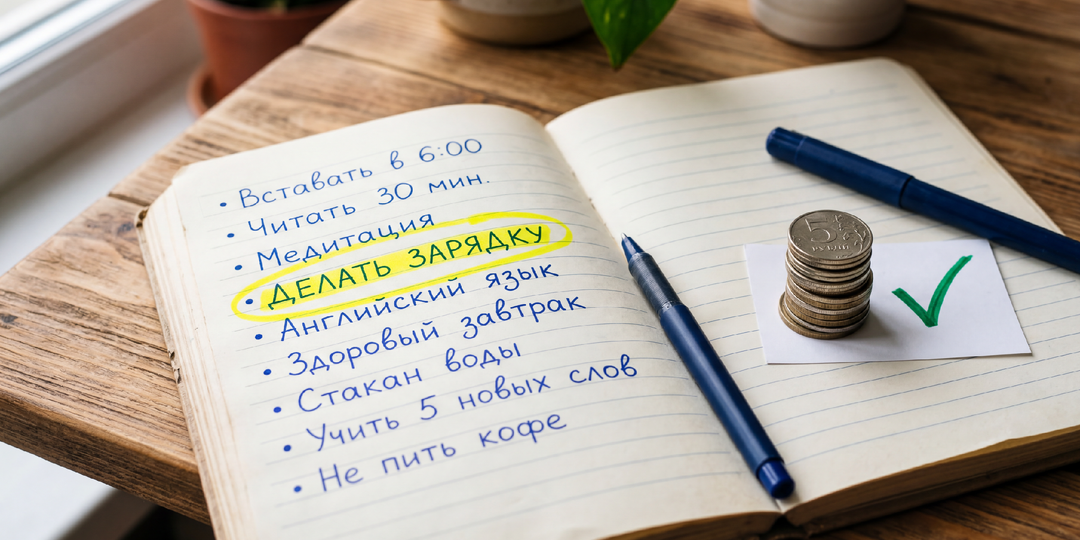 • Вставать в 6:00
• Читать 30 мин.
• Медитация
• ДЕЛАТЬ ЗАРЯДКУ
• Английский язык
• Здоровый завтрак
• Стакан воды
• Учить 5 новых слов
• Не пить кофе
5